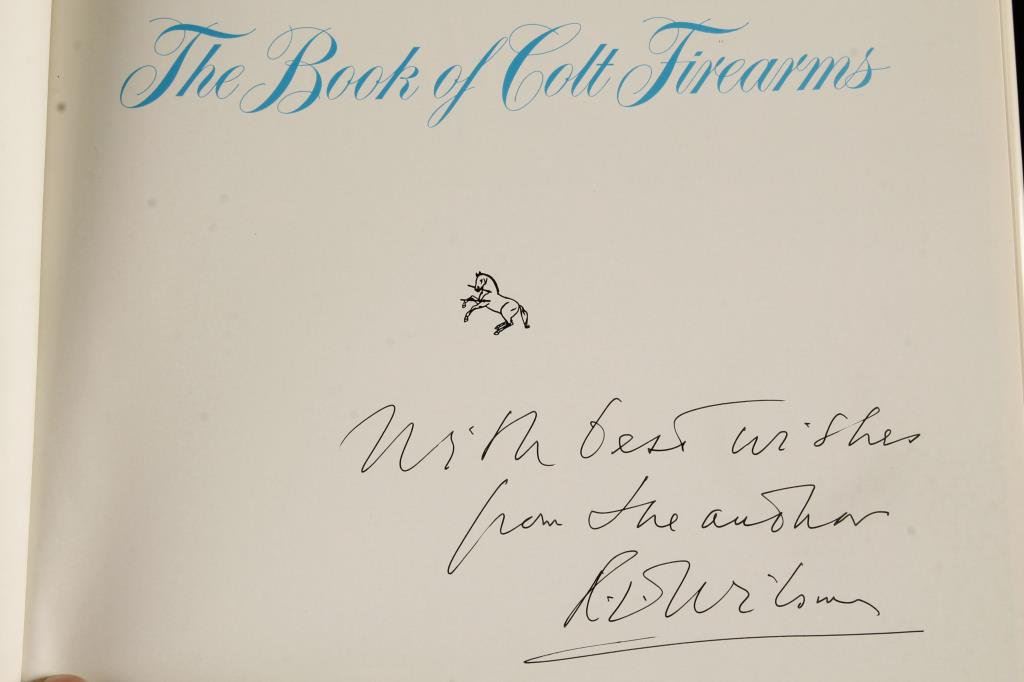 The Book of Colt Firearms
With best wishes
from the author
R.L. Wilson